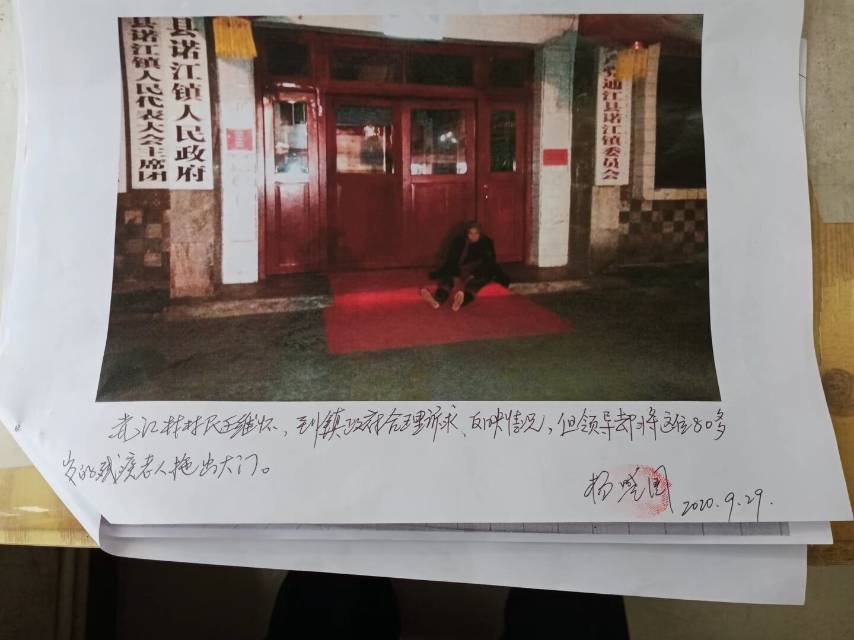 县诺江镇人民代表大会主席团
县诺江镇人民政府
省通江县诺江镇委员会
江村村民王继怀，到镇政府合理诉求、反映情况，但领导却将这位80多
岁的残疾老人拖出大门。
杨 国
2020.9.29.